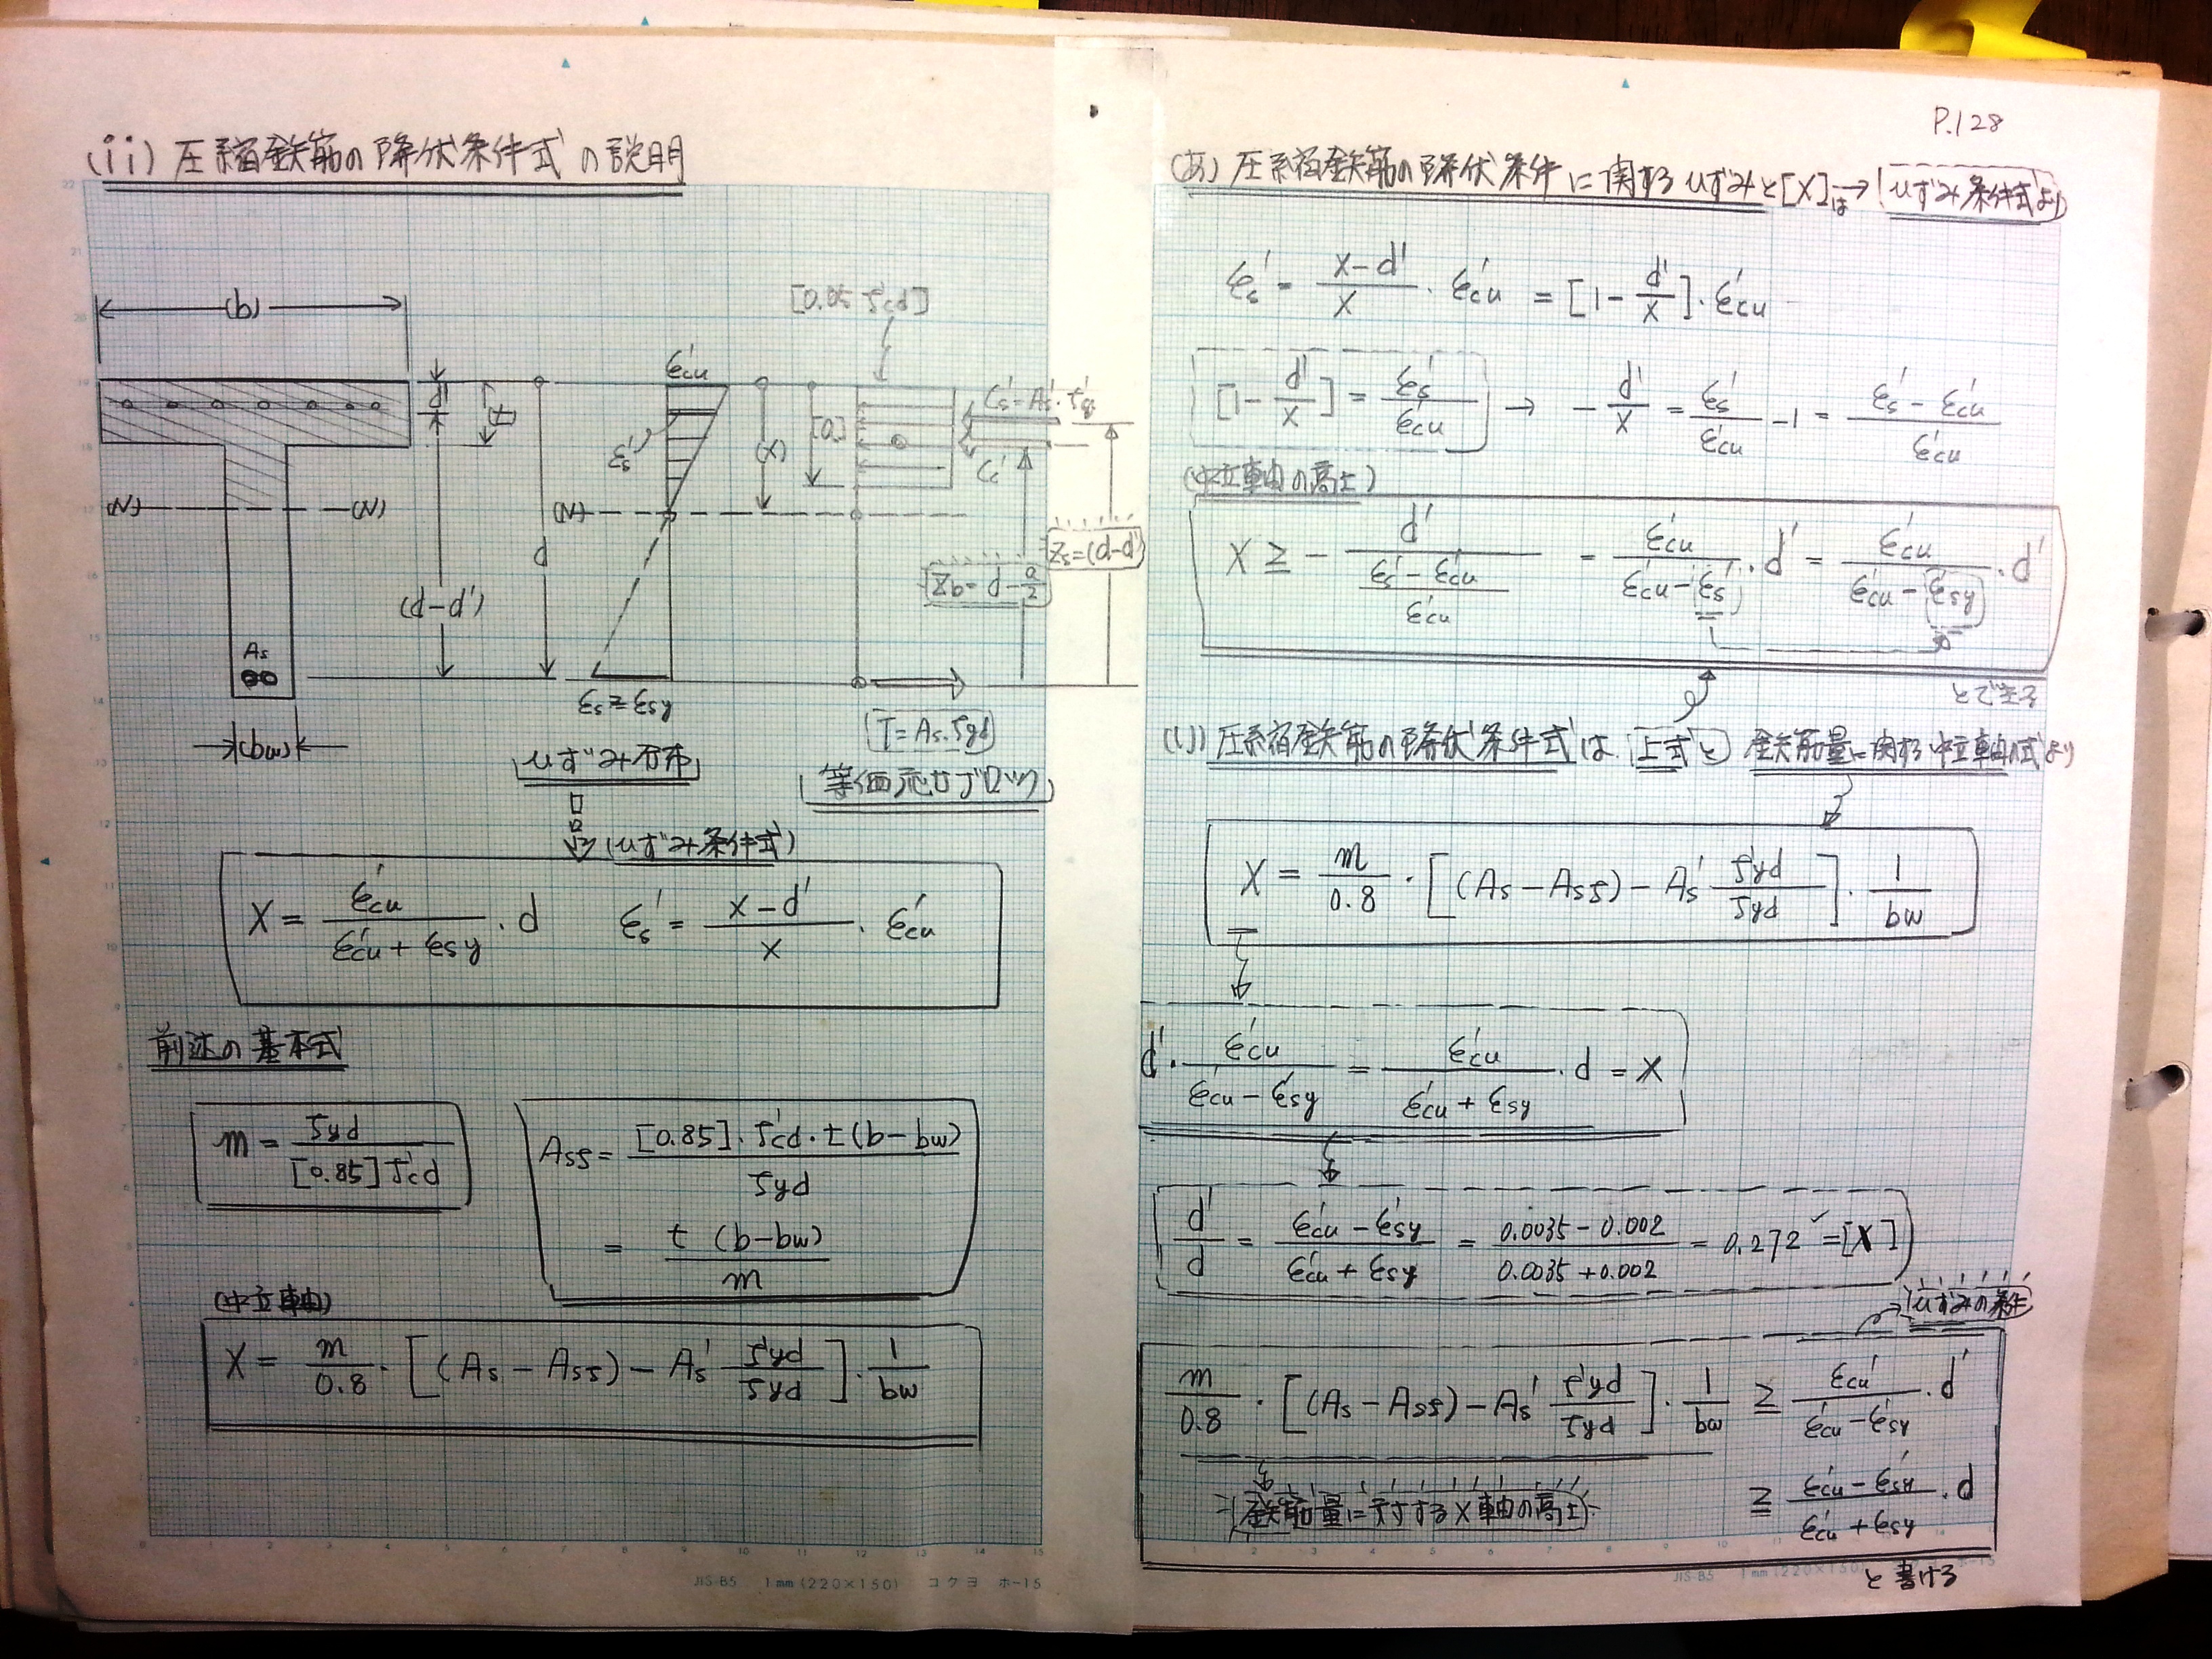 (ii) 圧縮鉄筋の降伏条件式の説明
(b)
d'
t
(N) (N)
d
(d-d')
As
(bw)
ε'cu
ε's
(N)
(x)
εs ≧ εsy
ひずみ分布
[0.85 f'cd]
[a]
C's = A's・f'y
C'c
Zb = d - a/2
Zs = (d-d')
T = As・fyd
等価応力ブロック
(ひずみ条件式)
X = ε'cu / (ε'cu + εsy) ・d  ε's = (x-d') / x ・ε'cu
前述の基本式
m = fyd / [0.85] f'cd
Asf = [0.85]・f'cd・t(b-bw) / fyd
= t (b-bw) / m
(中立軸)
X = m/0.8・[(As - Asf) - As' f'yd/fyd]・1/bw
JIS-B5 1mm (220×150) コクヨ ホ-15
P.128
(あ) 圧縮鉄筋の降伏条件に関するひずみと[X]は→(ひずみ条件式より)
ε's = (x-d')/x・ε'cu = [1 - d'/x]・ε'cu
[1 - d'/x] = ε's/ε'cu → -d'/x = ε's/ε'cu - 1 = (ε's - ε'cu)/ε'cu
(中立軸の高さ)
X ≧ - d' / ((ε's - ε'cu)/ε'cu) = ε'cu/(ε'cu - ε's)・d' = ε'cu/(ε'cu - ε'sy)・d'
(い) 圧縮鉄筋の降伏条件式は、上式と 鉄筋量に関する中立軸の式より
X = m/0.8・[(As - Asf) - As' f'yd/fyd]・1/bw
d'・ε'cu/(ε'cu - ε'sy) = ε'cu/(ε'cu + εsy)・d = X
d'/d = (ε'cu - ε'sy)/(ε'cu + εsy) = (0.0035 - 0.002)/(0.0035 + 0.002) = 0.272 = [X]
ひずみの条件
m/0.8・[(As - Asf) - As' f'yd/fyd]・1/bw ≧ ε'cu/(ε'cu - ε'sy)・d'
鉄筋量に対するX軸の高さ
≧ (ε'cu - ε'sy)/(ε'cu + εsy)・d
と書ける
JIS-B5 1mm (220×150)